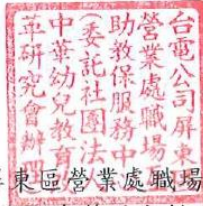 台電公司屏東
營業處職場
助教保服務中
(委託社團法人
中華幼兒教育
革研究會辦理
東區營業處職場